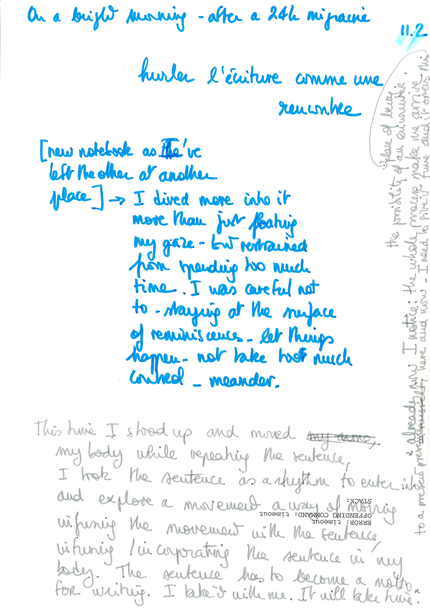 On a bright morning - after a 24h migraine
11.2
hurler l'écriture comme une
rencontre
[new notebook as I've
left the other at another
place] → I dived more into it
more than just floating
my gaze - but restrained
from spending too much
time. I was careful not
to - staying at the surface
of reminiscence - let things
happen - not take too much
control - meander.
place of being
the possibility of an encounter.
already now I notice: the whole process make me arrive
to a here and now - I need to give it time and it opens this
This time I stood up and moved my arms,
my body while repeating the sentence,
I took the sentence as a rhythm to enter in
and explore a movement a way of moving
infusing the movement with the sentence,
infusing / incorporating the sentence in my
body. The sentence has to become a motto
for writing. I take it with me. It will take time.
ERROR: timeout
OFFENDING COMMAND: timeout
STACK: